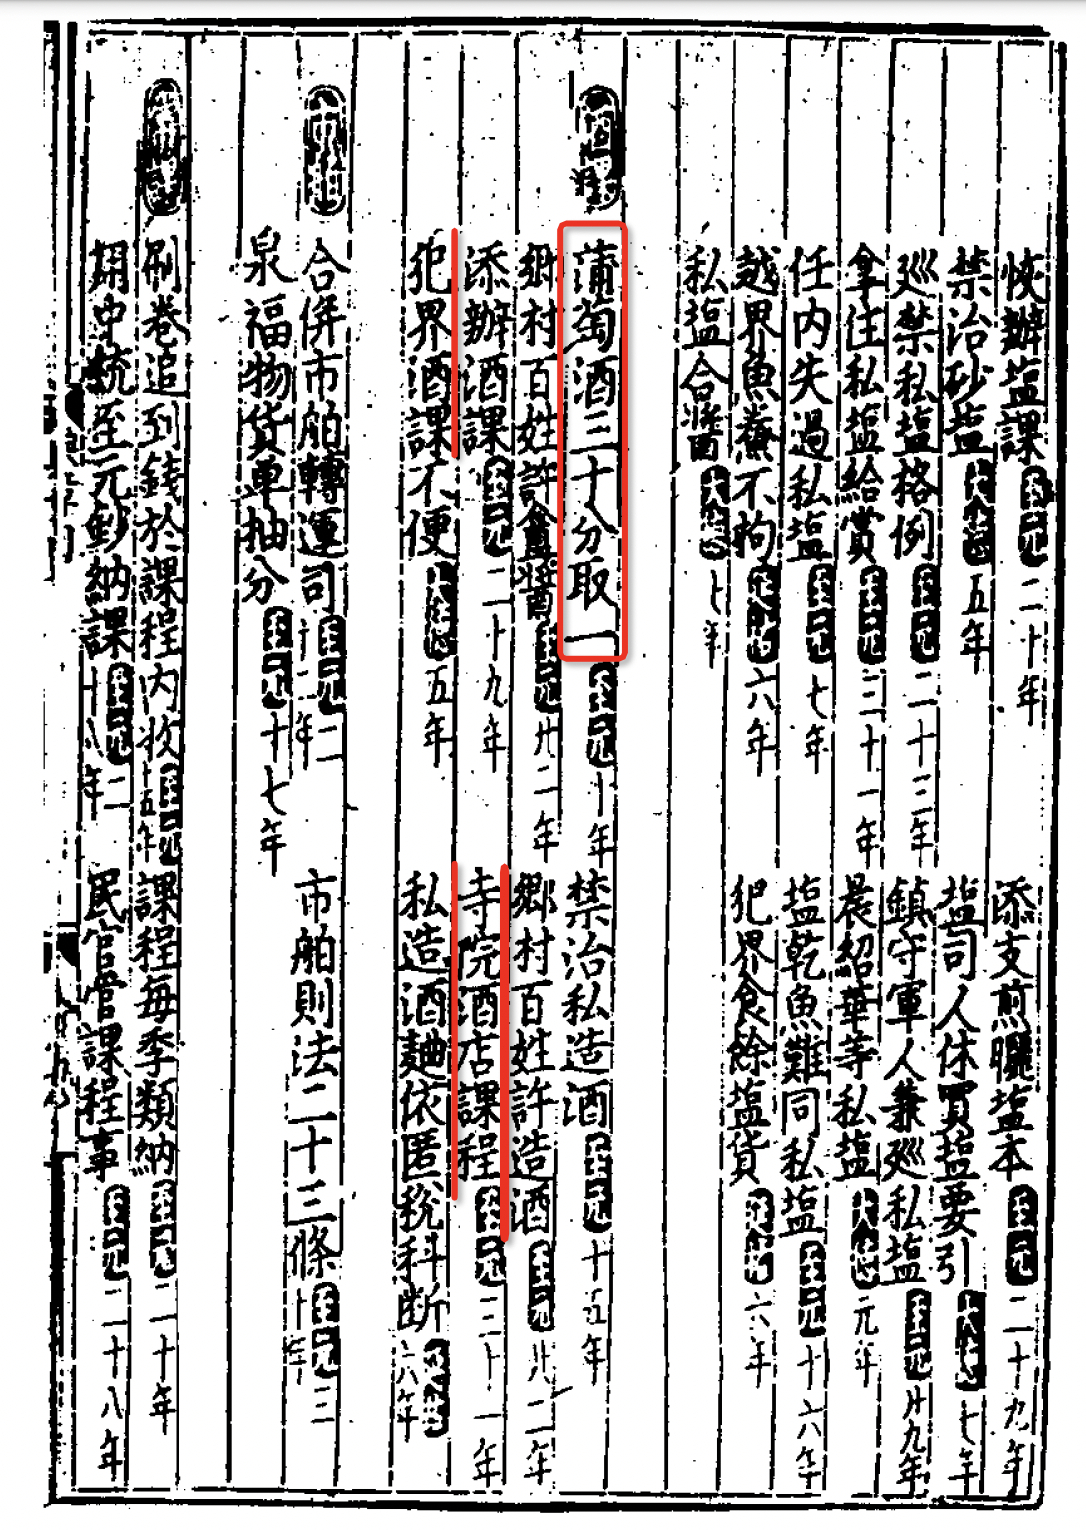 恢辦塩課 至元 二十年
添支煎曬塩本 至元 二十九年
禁治砂塩 五年
塩司人休買塩要引 七年
廵禁私塩格例 至元 二十三年
鎮守軍人兼廵私塩 至元 廿九年
拿住私塩給賞 至元 三十一年
晨紹華等私塩 元年
任内失過私塩 至元 七年
塩乾魚難同私塩 至元 十六年
越界魚鯗不拘 六年
犯界食餘塩貨 六年
私塩合醬 七年
酒課
蒲萄酒三十分取一 至元 十年
禁治私造酒 至元 十五年
鄉村百姓許盦醬 至元 廿二年
鄉村百姓許造酒 至元 廿二年
添辦酒課 至元 二十九年
寺院酒店課程 至元 三十一年
犯界酒課不便 五年
私造酒麯依匿稅科断 六年
市舶
合併市舶轉運司 至元 二十二年
市舶則法二十三條 至元 三十年
泉福物貨單抽分 至元 十七年
刷卷追到錢於課程内收 至元 十五年
課程每季類納 至元 二十年
翔中統至元鈔納課 至元 二十八年
民官管課程事 至元 二十八年